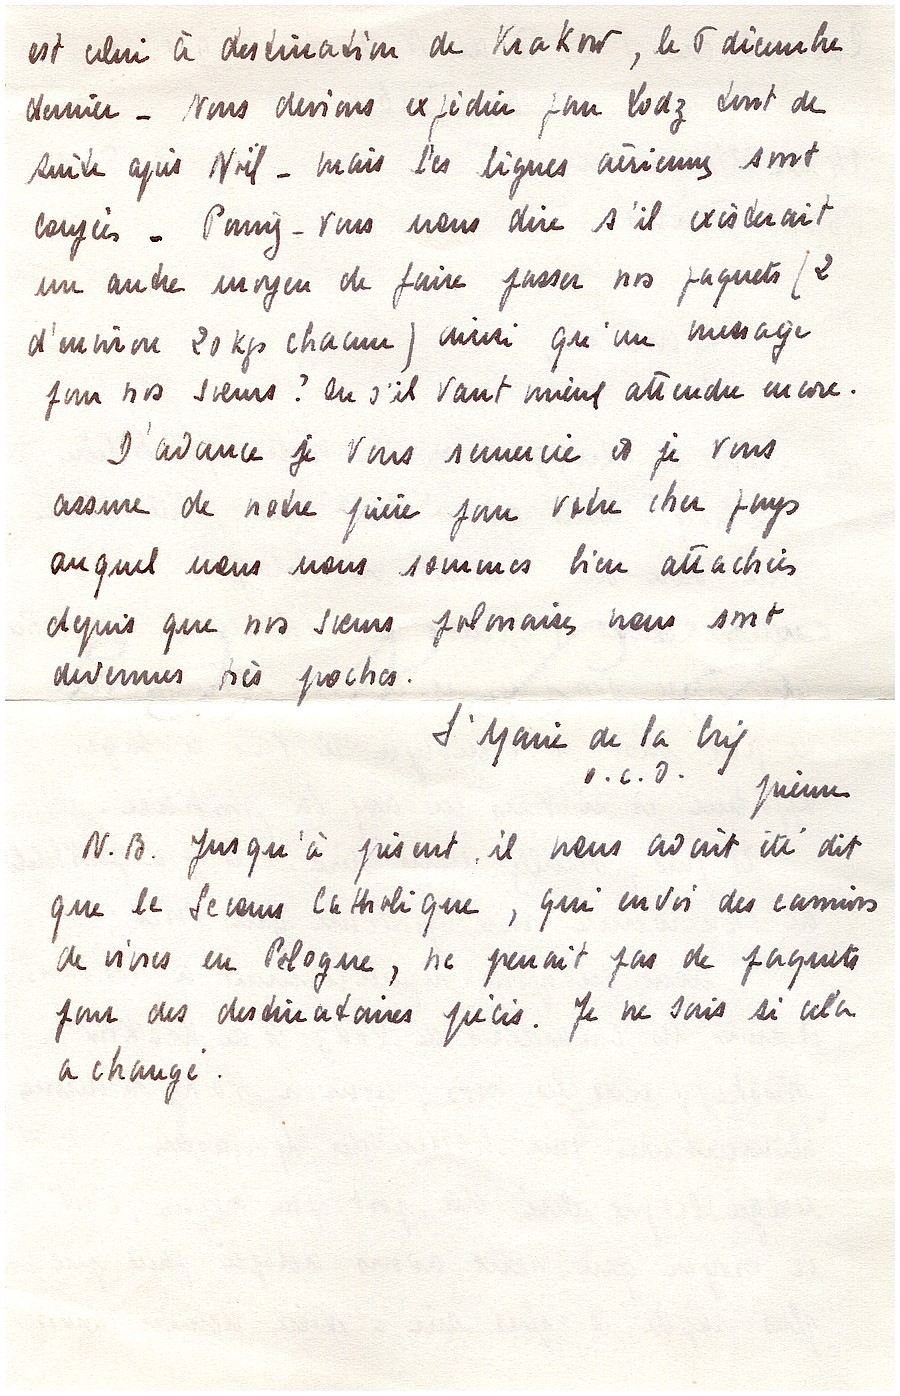 est celui à destination de Krakow, le 5 décembre
dernier - Nous devions expédier pour Lodz tout de
suite après Noël - mais les lignes aériennes sont
coupées - Pourriez-vous nous dire s'il existerait
un autre moyen de faire passer nos paquets (2
d'environ 20 kgs chacun) ainsi qu'un message
pour nos sœurs ? Ou s'il vaut mieux attendre encore.
D'avance je vous remercie et je vous
assure de notre prière pour votre cher pays
auquel nous nous sommes bien attachées
depuis que nos sœurs polonaises nous sont
devenues très proches.
Sr Marie de la Croix
o.c.d.
prieure
N.B. Jusqu'à présent, il nous avait été dit
que le Secours Catholique, qui envoi des camions
de vivres en Pologne, ne prenait pas de paquets
pour des destinataires précis. Je ne sais si cela
a changé.